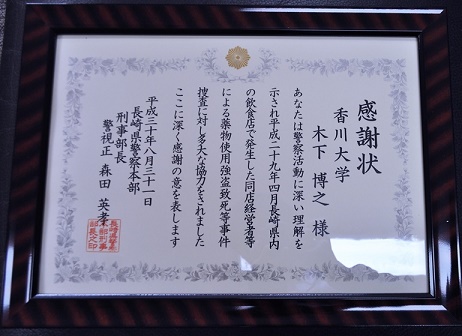 感謝状
香川大学
木下 博之 様
あなたは警察活動に深い理解を
示され平成二十九年四月長崎県内
の飲食店で発生した同店経営者等
による薬物使用強盗致死等事件
捜査に対し多大な協力をされました
ここに深く感謝の意を表します
平成三十年八月三十一日
長崎県警察本部
刑事部長
警視正 森田 英孝
長崎県警察
本部刑事
部長之印